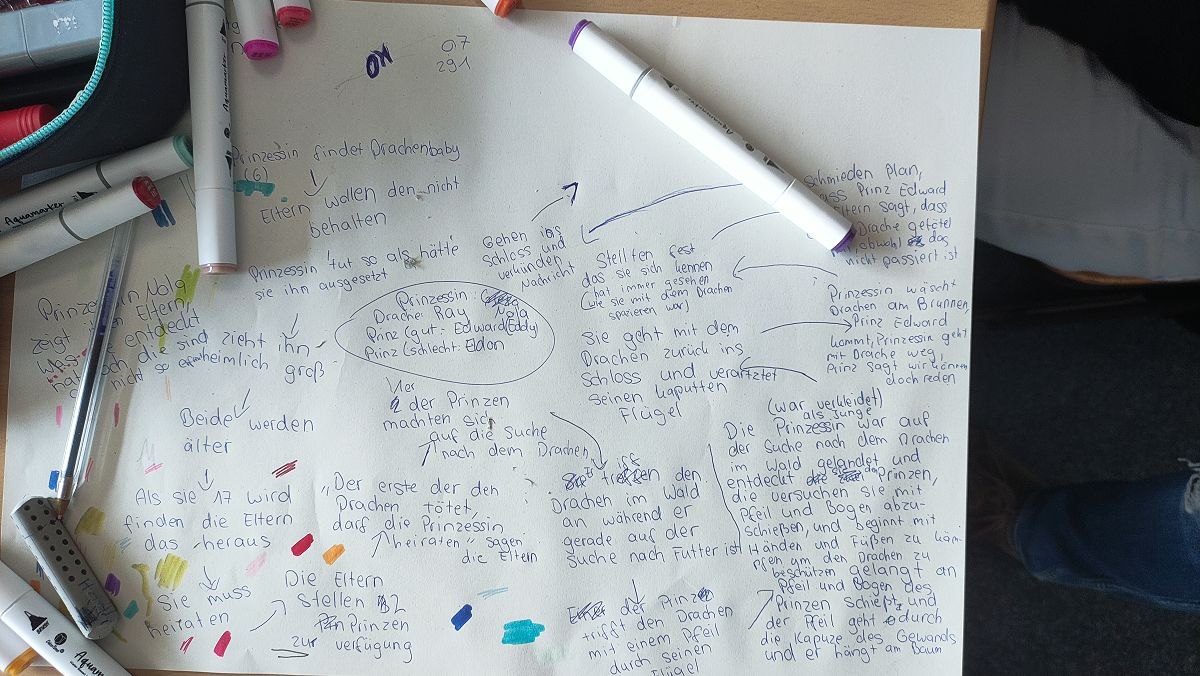 07
291
Prinzessin findet Drachenbaby
(6)
Eltern wollen den nicht
behalten
Prinzessin tut so als hätte
sie ihn ausgesetzt
Prinzessin Nola
zeigt Eltern,
entdeckt
die sind zieht ihn
nicht so heimlich groß
Beide werden
älter
Als sie 17 wird
finden die Eltern
das heraus
Sie muss
heiraten
Die Eltern
stellen 2
Prinzen
zur verfügung
"Der erste der den
Drachen tötet,
darf die Prinzessin
heiraten" sagen
die Eltern
Vier
der Prinzen
machten sich
auf die Suche
nach dem Drachen
Prinzessin: Nola
Drache: Ray
Prinz (gut: Edward (Eddy)
Prinz (schlecht: Eldon
treffen den
Drachen im Wald
an während er
gerade auf der
suche nach Futter ist
der Prinz
trifft den Drachen
mit einem Pfeil
durch seinen
Flügel
(war verkleidet)
als Junge
Die Prinzessin war auf
der Suche nach dem Drachen
im Wald gelandet und
entdeckt den Prinzen,
die versuchen sie mit
Pfeil und Bogen abzu-
schießen, und beginnt mit
Händen und Füßen zu käm-
pfen um den Drachen zu
beschützen gelangt an
Pfeil und Bogen des
Prinzen schießt und
der Pfeil geht durch
die Kapuze des Gewands
und er hängt am Baum
Sie geht mit dem
Drachen zurück ins
Schloss und verarztet
seinen kaputten
Flügel
Prinzessin wäscht
Drachen am Brunnen,
Prinz Edward
kommt, Prinzessin geht
mit Drache weg,
Prinz sagt wir können
doch reden
Stellten fest
das sie sich kennen
(hat immer gesehen
wie sie mit dem Drachen
spazieren war)
schmieden Plan,
Prinz Edward
Eltern sagt, dass
Drache getötet
obwohl das
nicht passiert ist
Gehen ins
Schloss und
verkünden
Nachricht
Aquamarker
Aquamarker
Aquamarker
Aquamarker